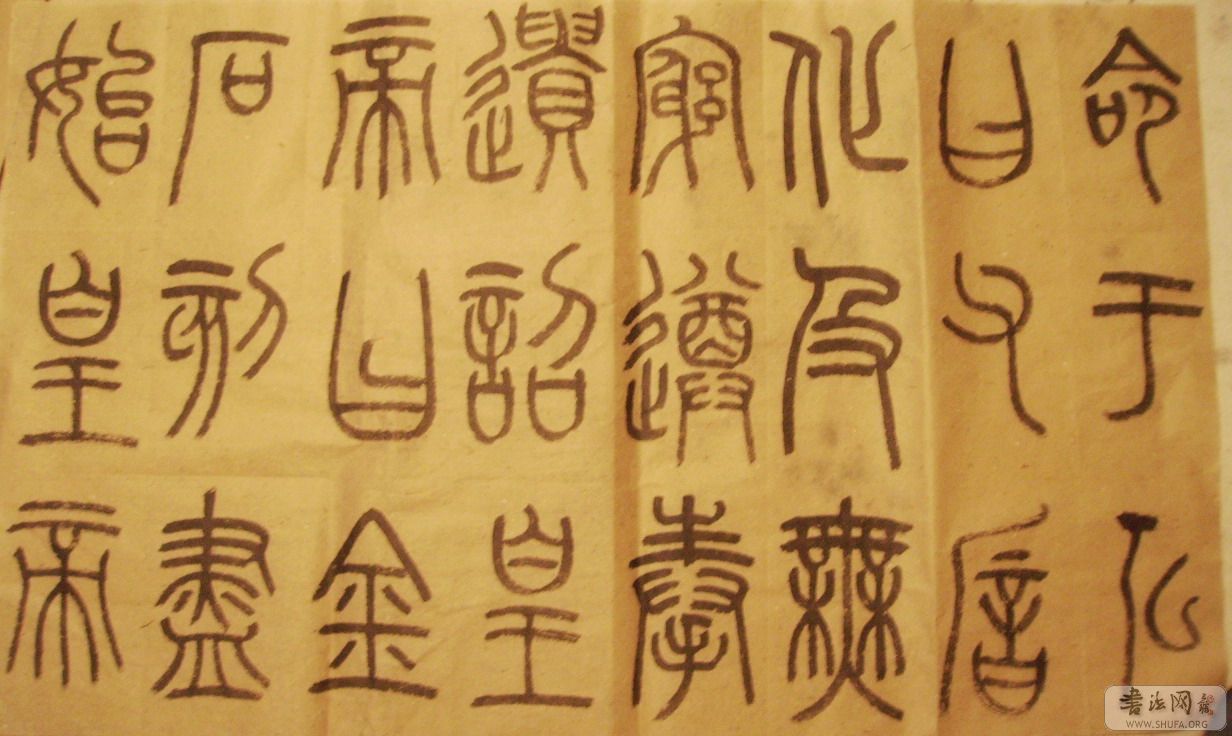 命于
曰
化及無
窮遵奉
遺詔皇
帝曰金
石刻盡
始皇帝
書法网
WWW.SHUFA.ORG